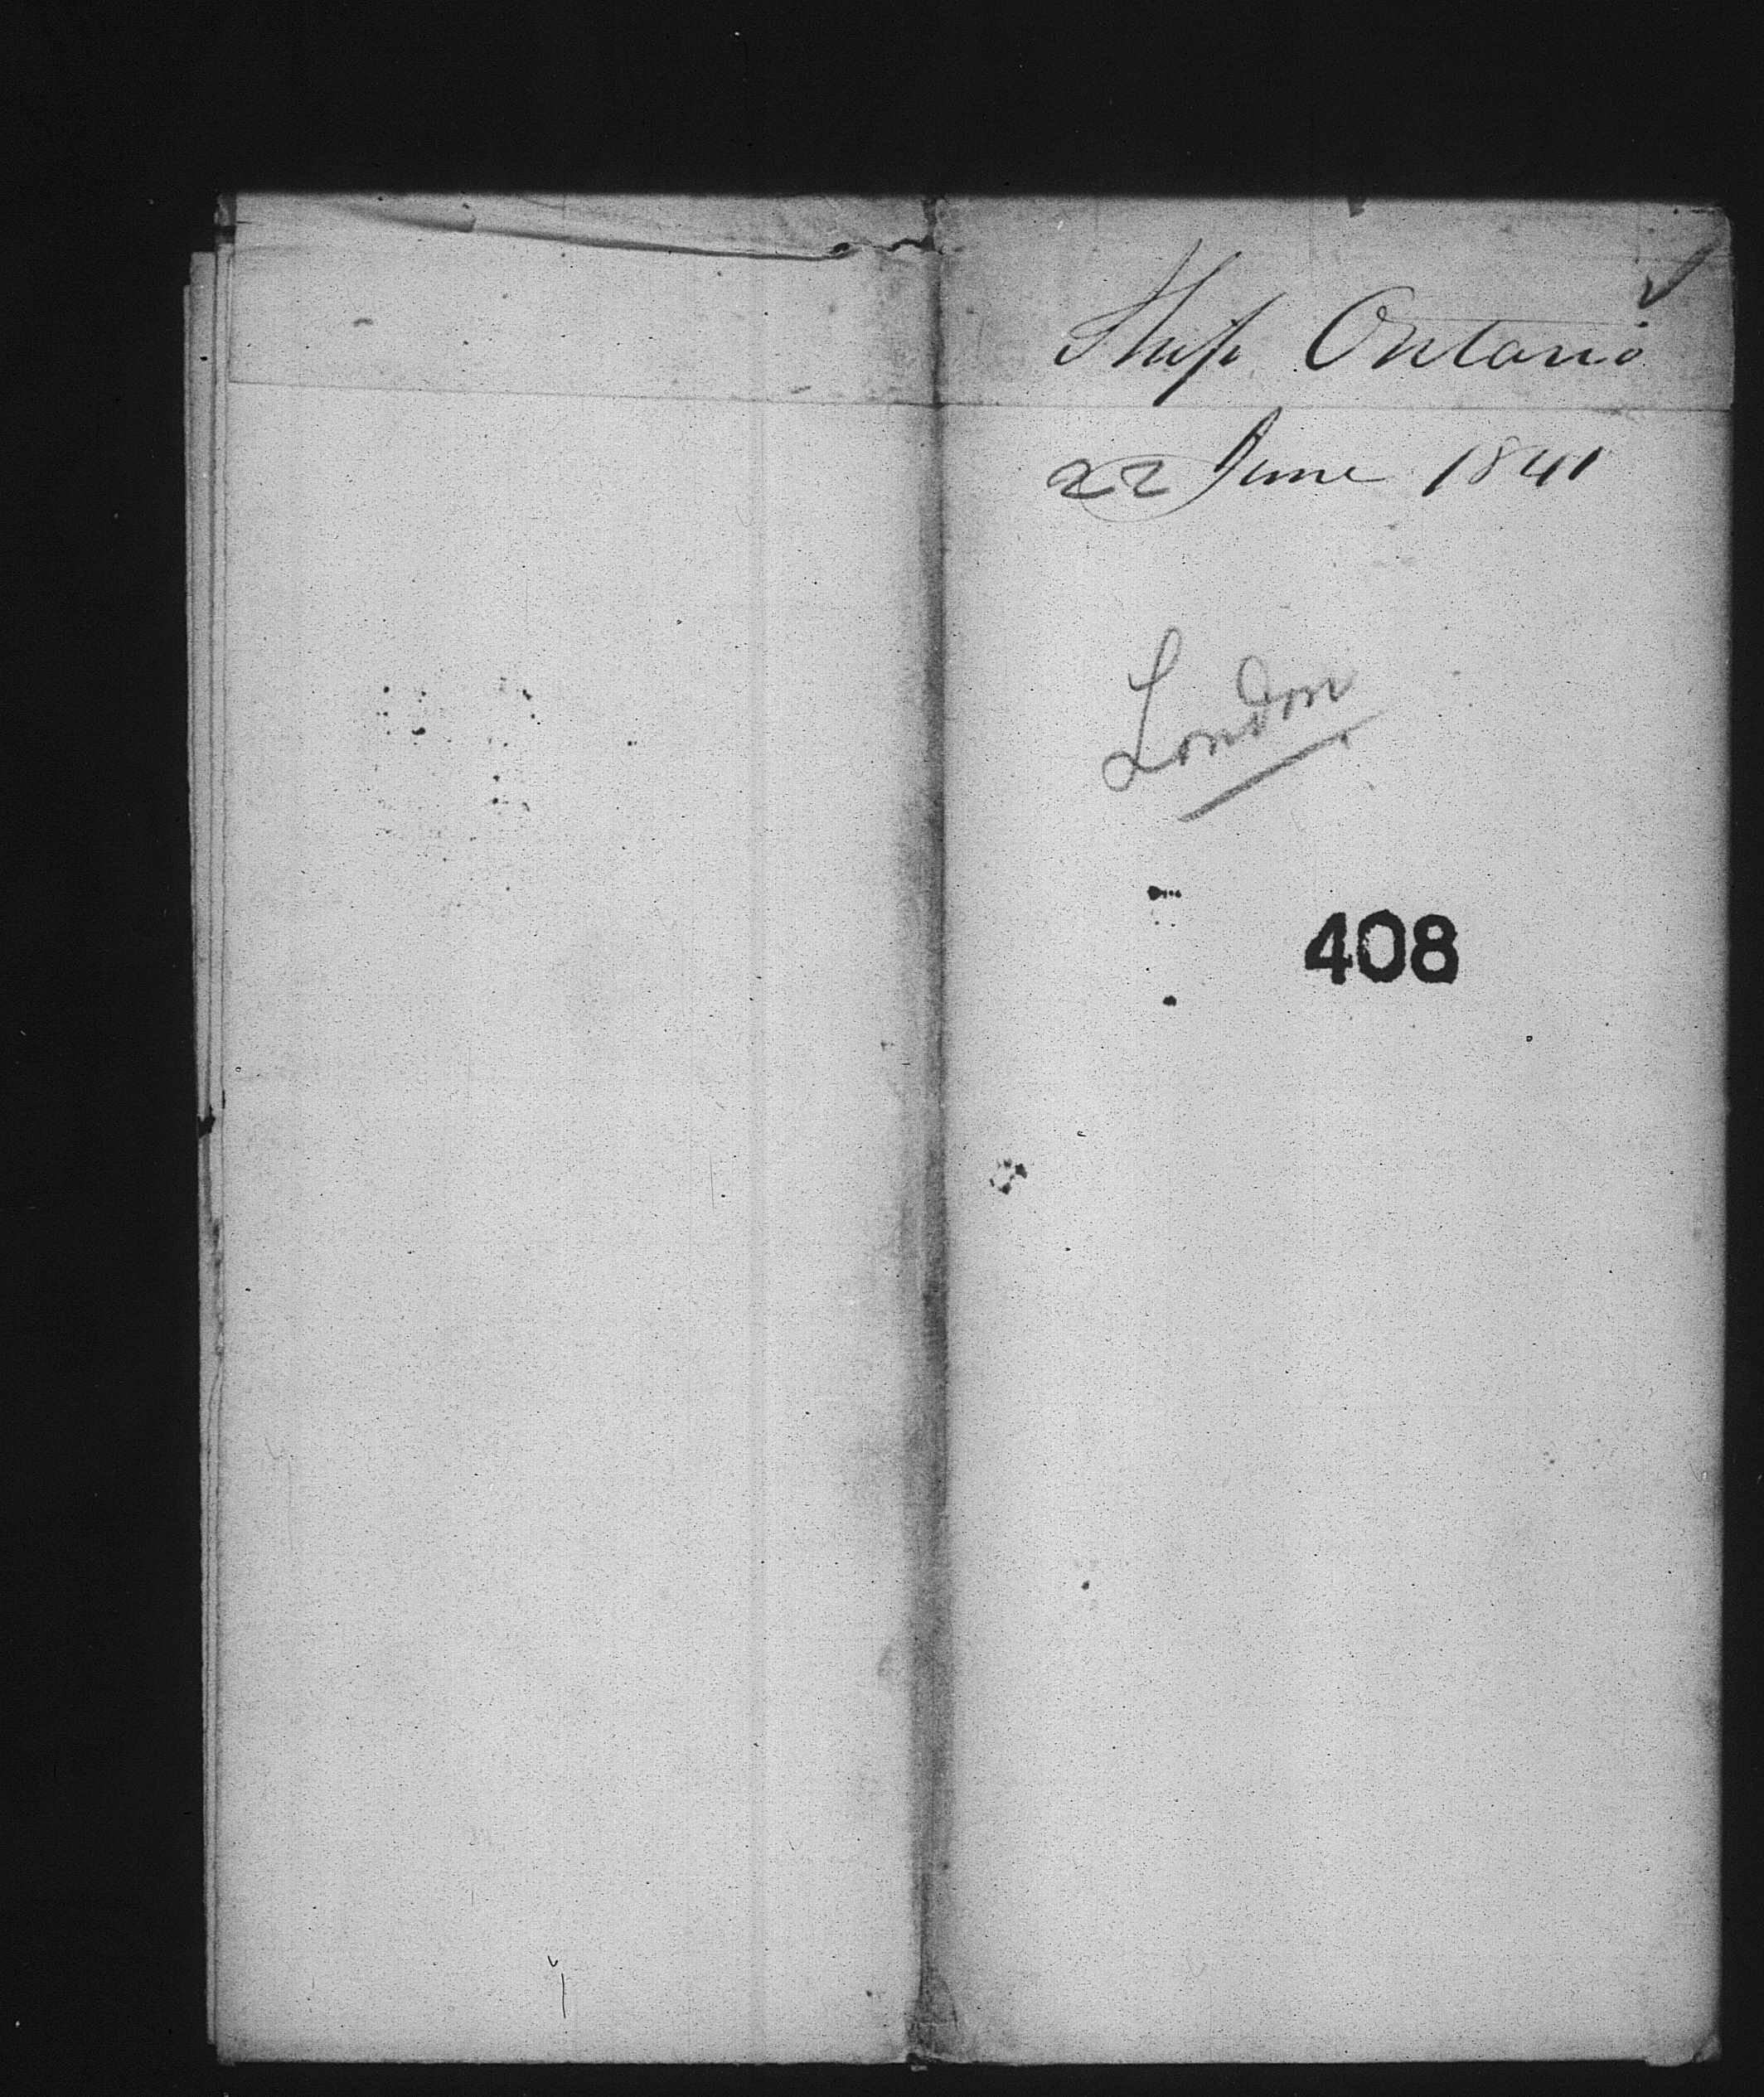 Ship Ontario
22 June 1841
London
408